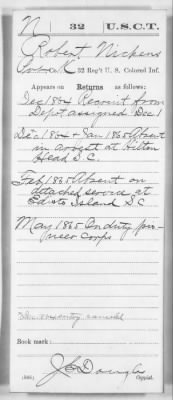 N | 32 | U.S.C.T.
Robert Nickens
Co. K, 32 Reg't U. S. Colored Inf.
Appears on Returns as follows:
Dec 1864 Recruit from
Depot assigned Dec 1
Dec 1864 & Jan 1865 Absent
in arrest at Hilton
Head S.C.
Feb 1865 Absent on
detached service at
Edisto Island S C
May 1865 On duty pio-
neer Corps
Book mark:
J C Douglas
(546) Copyist.